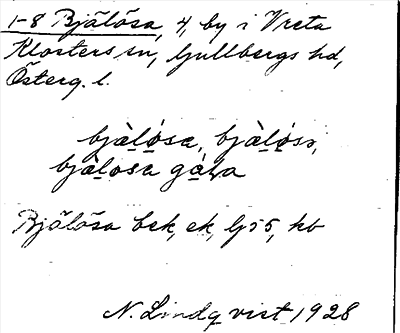 1-8 Bjälösa, 4, by i Vreta
Klosters sn, Gullbergs hd,
Österg. l.
bjàlo̱sa, bjàlo̱ss,
bjàlosa gàḷa
Bjälösa bek, ek, Gj 55, hb
N. Lindqvist 1928